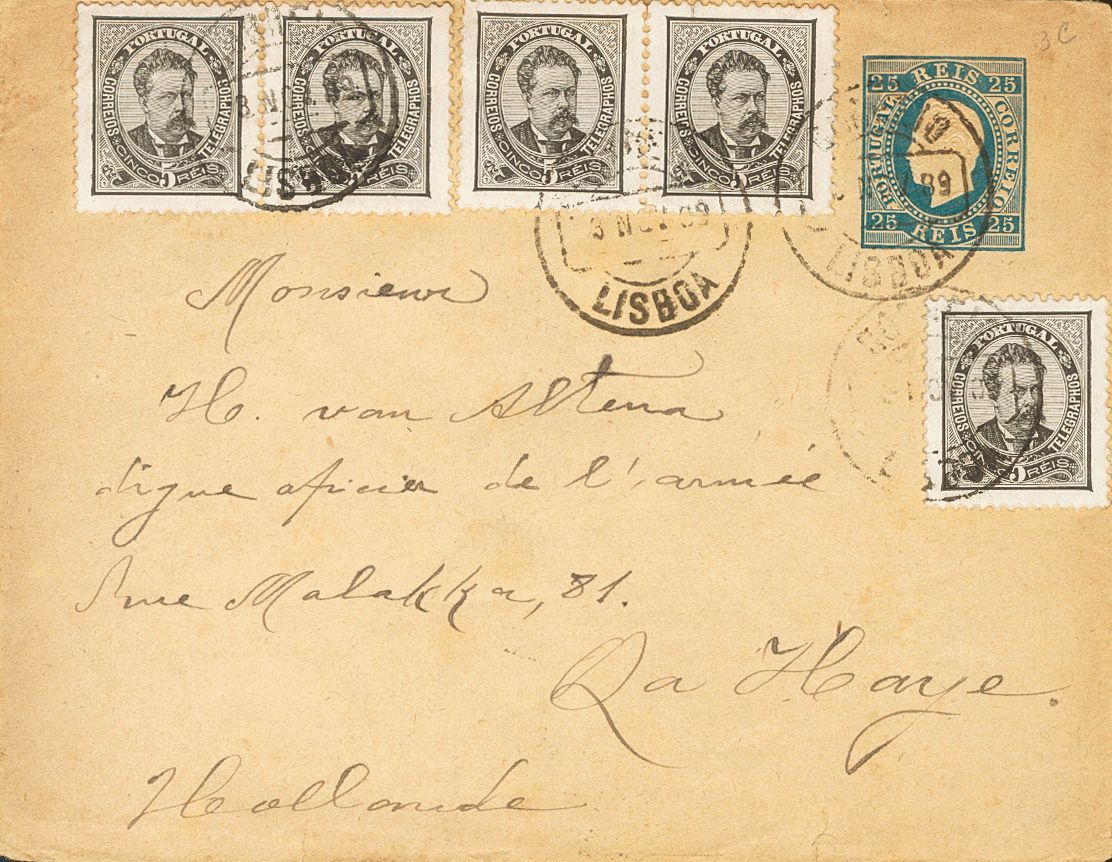 3C
PORTUGAL
CORREIOS
TELEGRAPHOS
CINCO REIS
5
PORTUGAL
CORREIOS
TELEGRAPHOS
CINCO REIS
5
PORTUGAL
CORREIOS
TELEGRAPHOS
CINCO REIS
5
PORTUGAL
CORREIOS
TELEGRAPHOS
CINCO REIS
5
25 REIS 25
PORTUGAL
CORREIO
25 REIS 25
LISBOA
3 NOV 89
LISBOA
89
LISBOA
PORTUGAL
CORREIOS
TELEGRAPHOS
CINCO REIS
5
Monsieur
H. van Altena
digne oficier de l'armée
Rue Malakka, 81.
La Haye.
Hollande